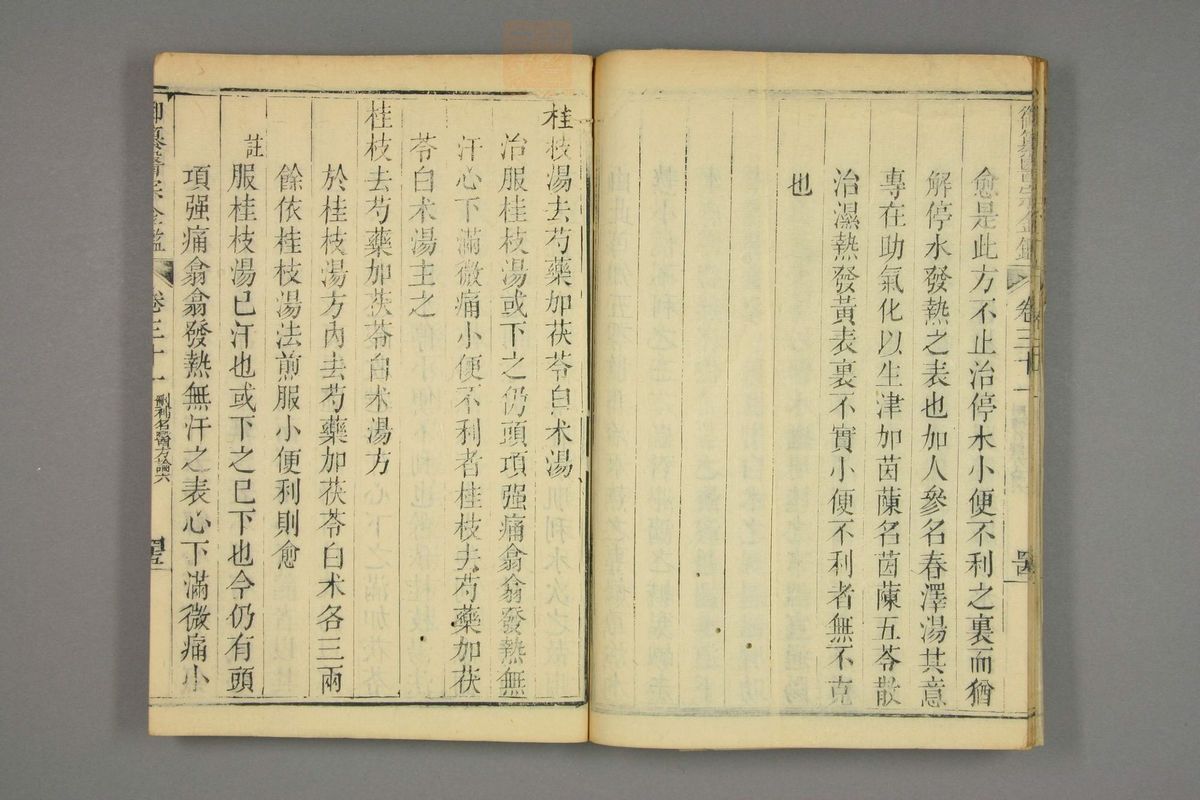 愈是此方不止治停水小便不利之裏而猶
解停水發熱之表也加人參名春澤湯其意
專在助氣化以生津加茵蔯名茵蔯五苓散
治濕熱發黃表裏不實小便不利者無不克
也
桂枝湯去芍藥加茯苓白朮湯
治服桂枝湯或下之仍頭項强痛翕翕發熱無
汗心下滿微痛小便不利者桂枝去芍藥加茯
苓白朮湯主之
桂枝去芍藥加茯苓白朮湯方
於桂枝湯方內去芍藥加茯苓白朮各三兩
餘依桂枝湯法煎服小便利則愈
註服桂枝湯已汗也或下之已下也今仍有頭
項强痛翕翕發熱無汗之表心下滿微痛小
御纂醫宗金鑑 卷三十一 刪補名醫方論六